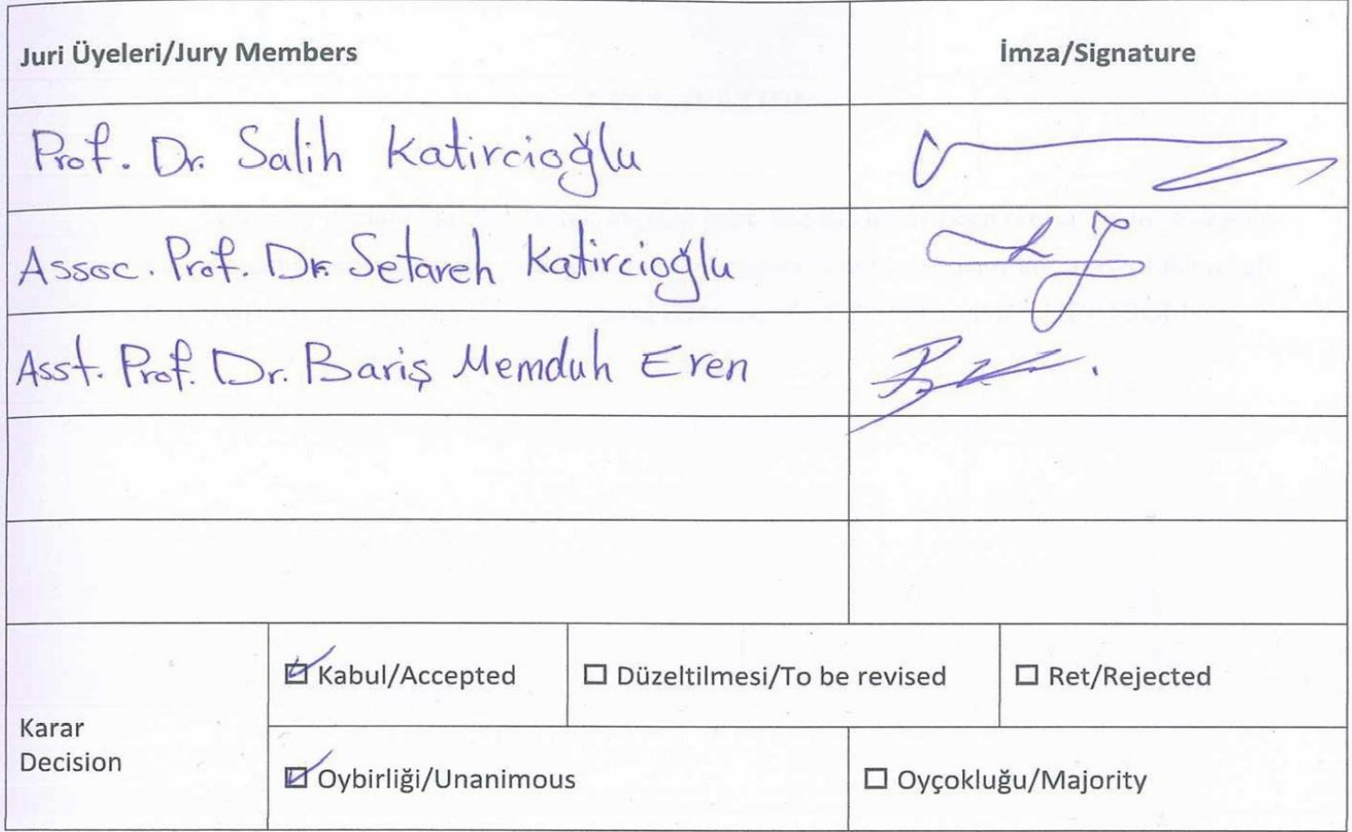 Juri Üyeleri/Jury Members İmza/Signature
Prof. Dr. Salih Katircioğlu
Assoc. Prof. Dr. Setareh Katircioğlu
Asst. Prof. Dr. Bariş Memduh Eren
☑ Kabul/Accepted ☐ Düzeltilmesi/To be revised ☐ Ret/Rejected
Karar
Decision
☑ Oybirliği/Unanimous ☐ Oyçokluğu/Majority